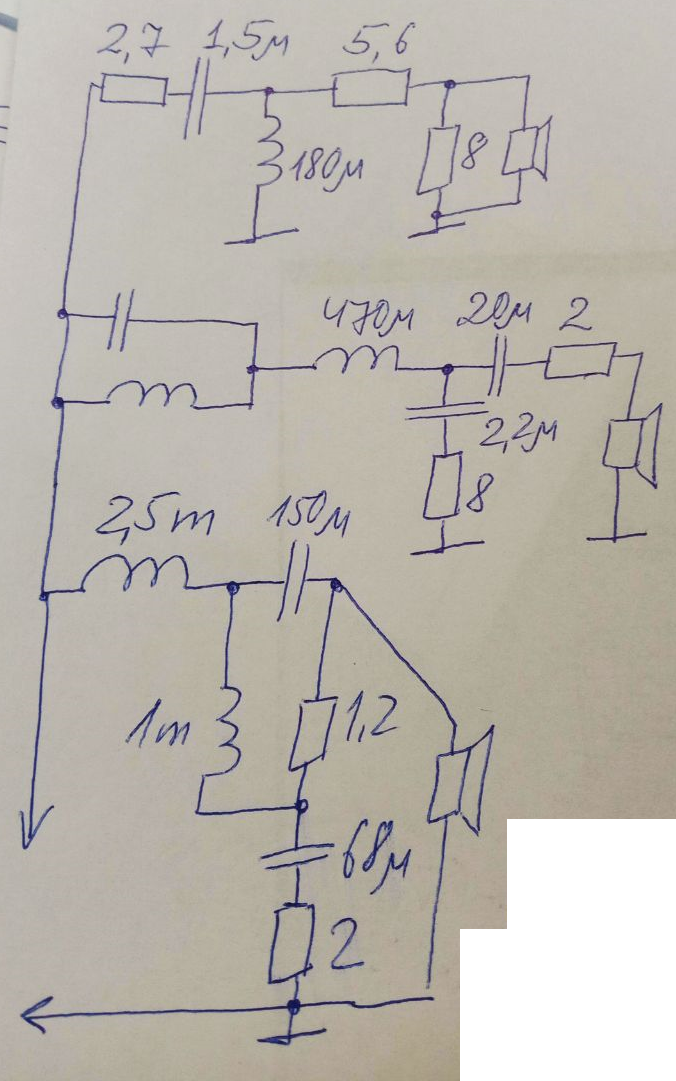 2,7 1,5м 5,6
180м 8
470м 20м 2
2,2м
8
2,5m 150м
1m 1,2
68м
2